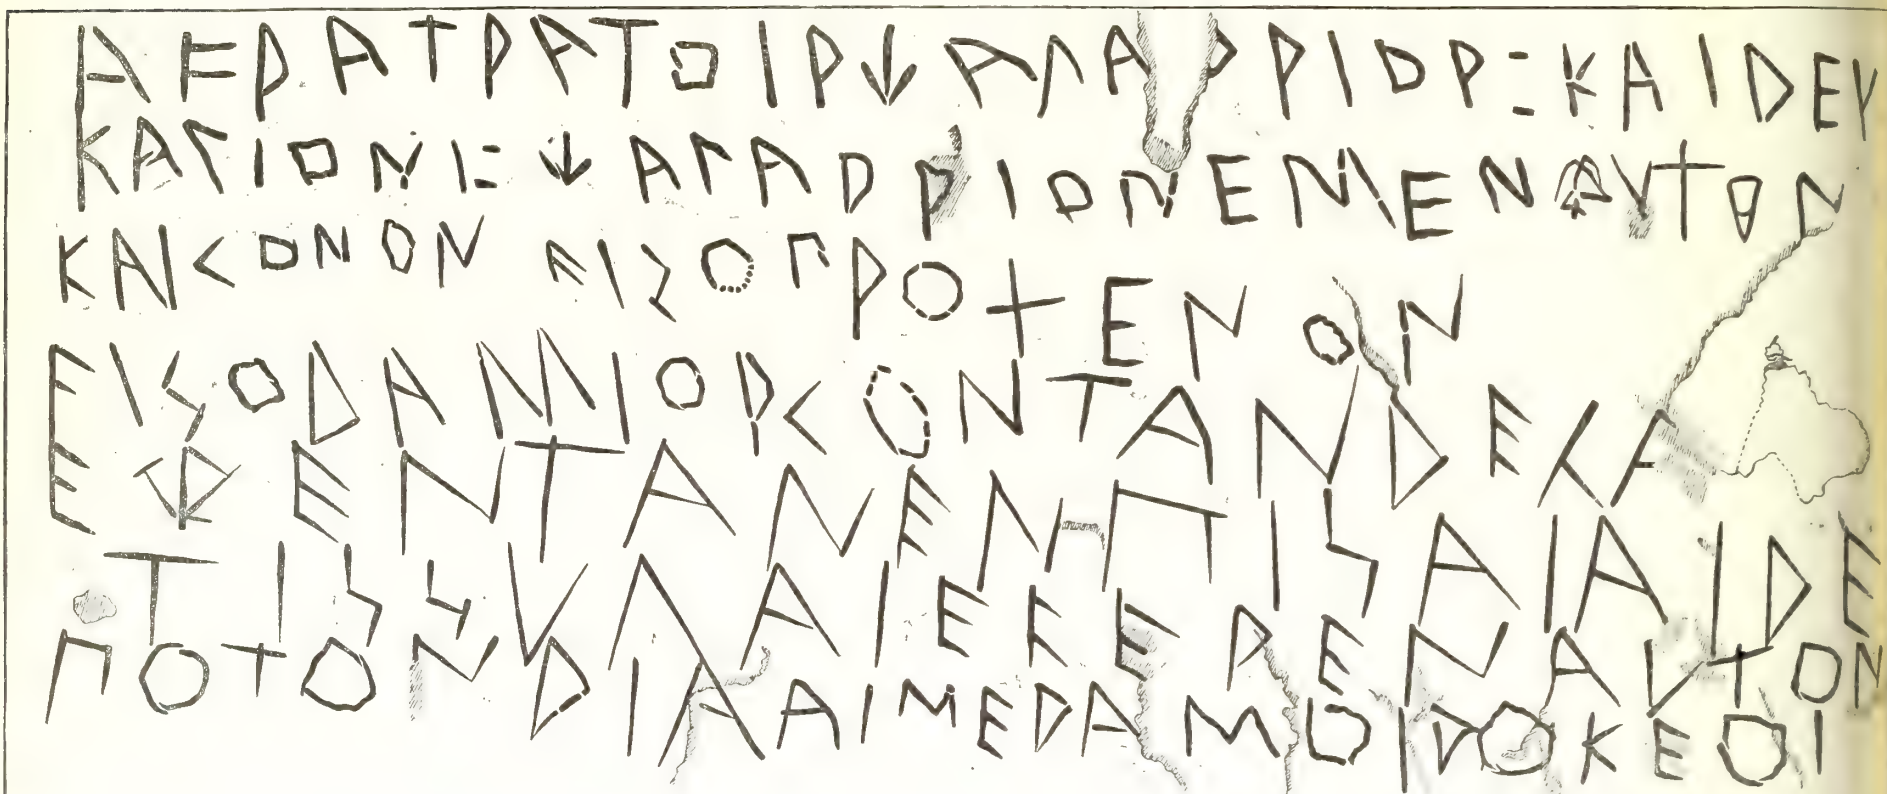 ΑϜΡΑΤΡΑΤΟΙΡΧΑΛΑΔΡΙΟΡ:ΚΑΙΔΕΥ
ΚΑΛΙΟΝΙ:ΧΑΛΑΔΡΙΟΝΕΜΕΝΑΥΤΟΝ
ΚΑΙΓΟΝΟΝϜΙΣΟΠΡΟΞΕΝΟΝ
ϜΙΣΟΔΑΜΙΟΡΓΟΝΤΑΝΔΕΓΑ
ΕΧΕΝΤΑΝΕΝΠΙΣΑΙΑΙΔΕ
ΤΙΣΣΥΛΑΙΕϜΕΡΕΝΑΥΤΟΝ
ΠΟΤΟΝΔΙΑΑΙΜΕΔΑΜΟΙΔΟΚΕΟΙ